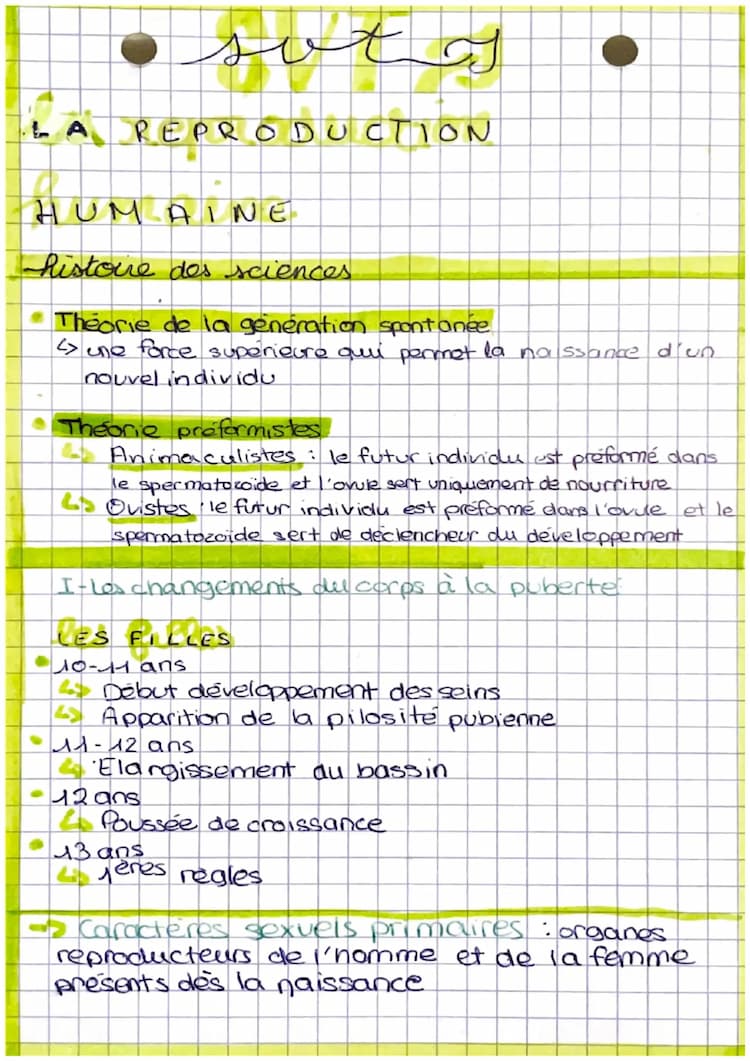 svt
LA REPRODUCTION
HUMAINE
histoire des sciences
• Théorie de la génération spontanée
↳ une force supérieure qui permet la naissance d'un
nouvel individu
• Théorie préformistes
↳ Animaculistes : le futur individu est préformé dans
le spermatozoïde et l'ovule sert uniquement de nourriture
↳ Ovistes : le futur individu est préformé dans l'ovule et le
spermatozoïde sert de déclencheur du développement
I-Les changements du corps à la puberté
LES FILLES
• 10-11 ans
↳ Début développement des seins
↳ Apparition de la pilosité pubienne
• 11-12 ans
↳ Élargissement du bassin
• 12 ans
↳ Poussée de croissance
• 13 ans
↳ 1ères règles
→ Caractères sexuels primaires : organes
reproducteurs de l'homme et de la femme
présents dès la naissance